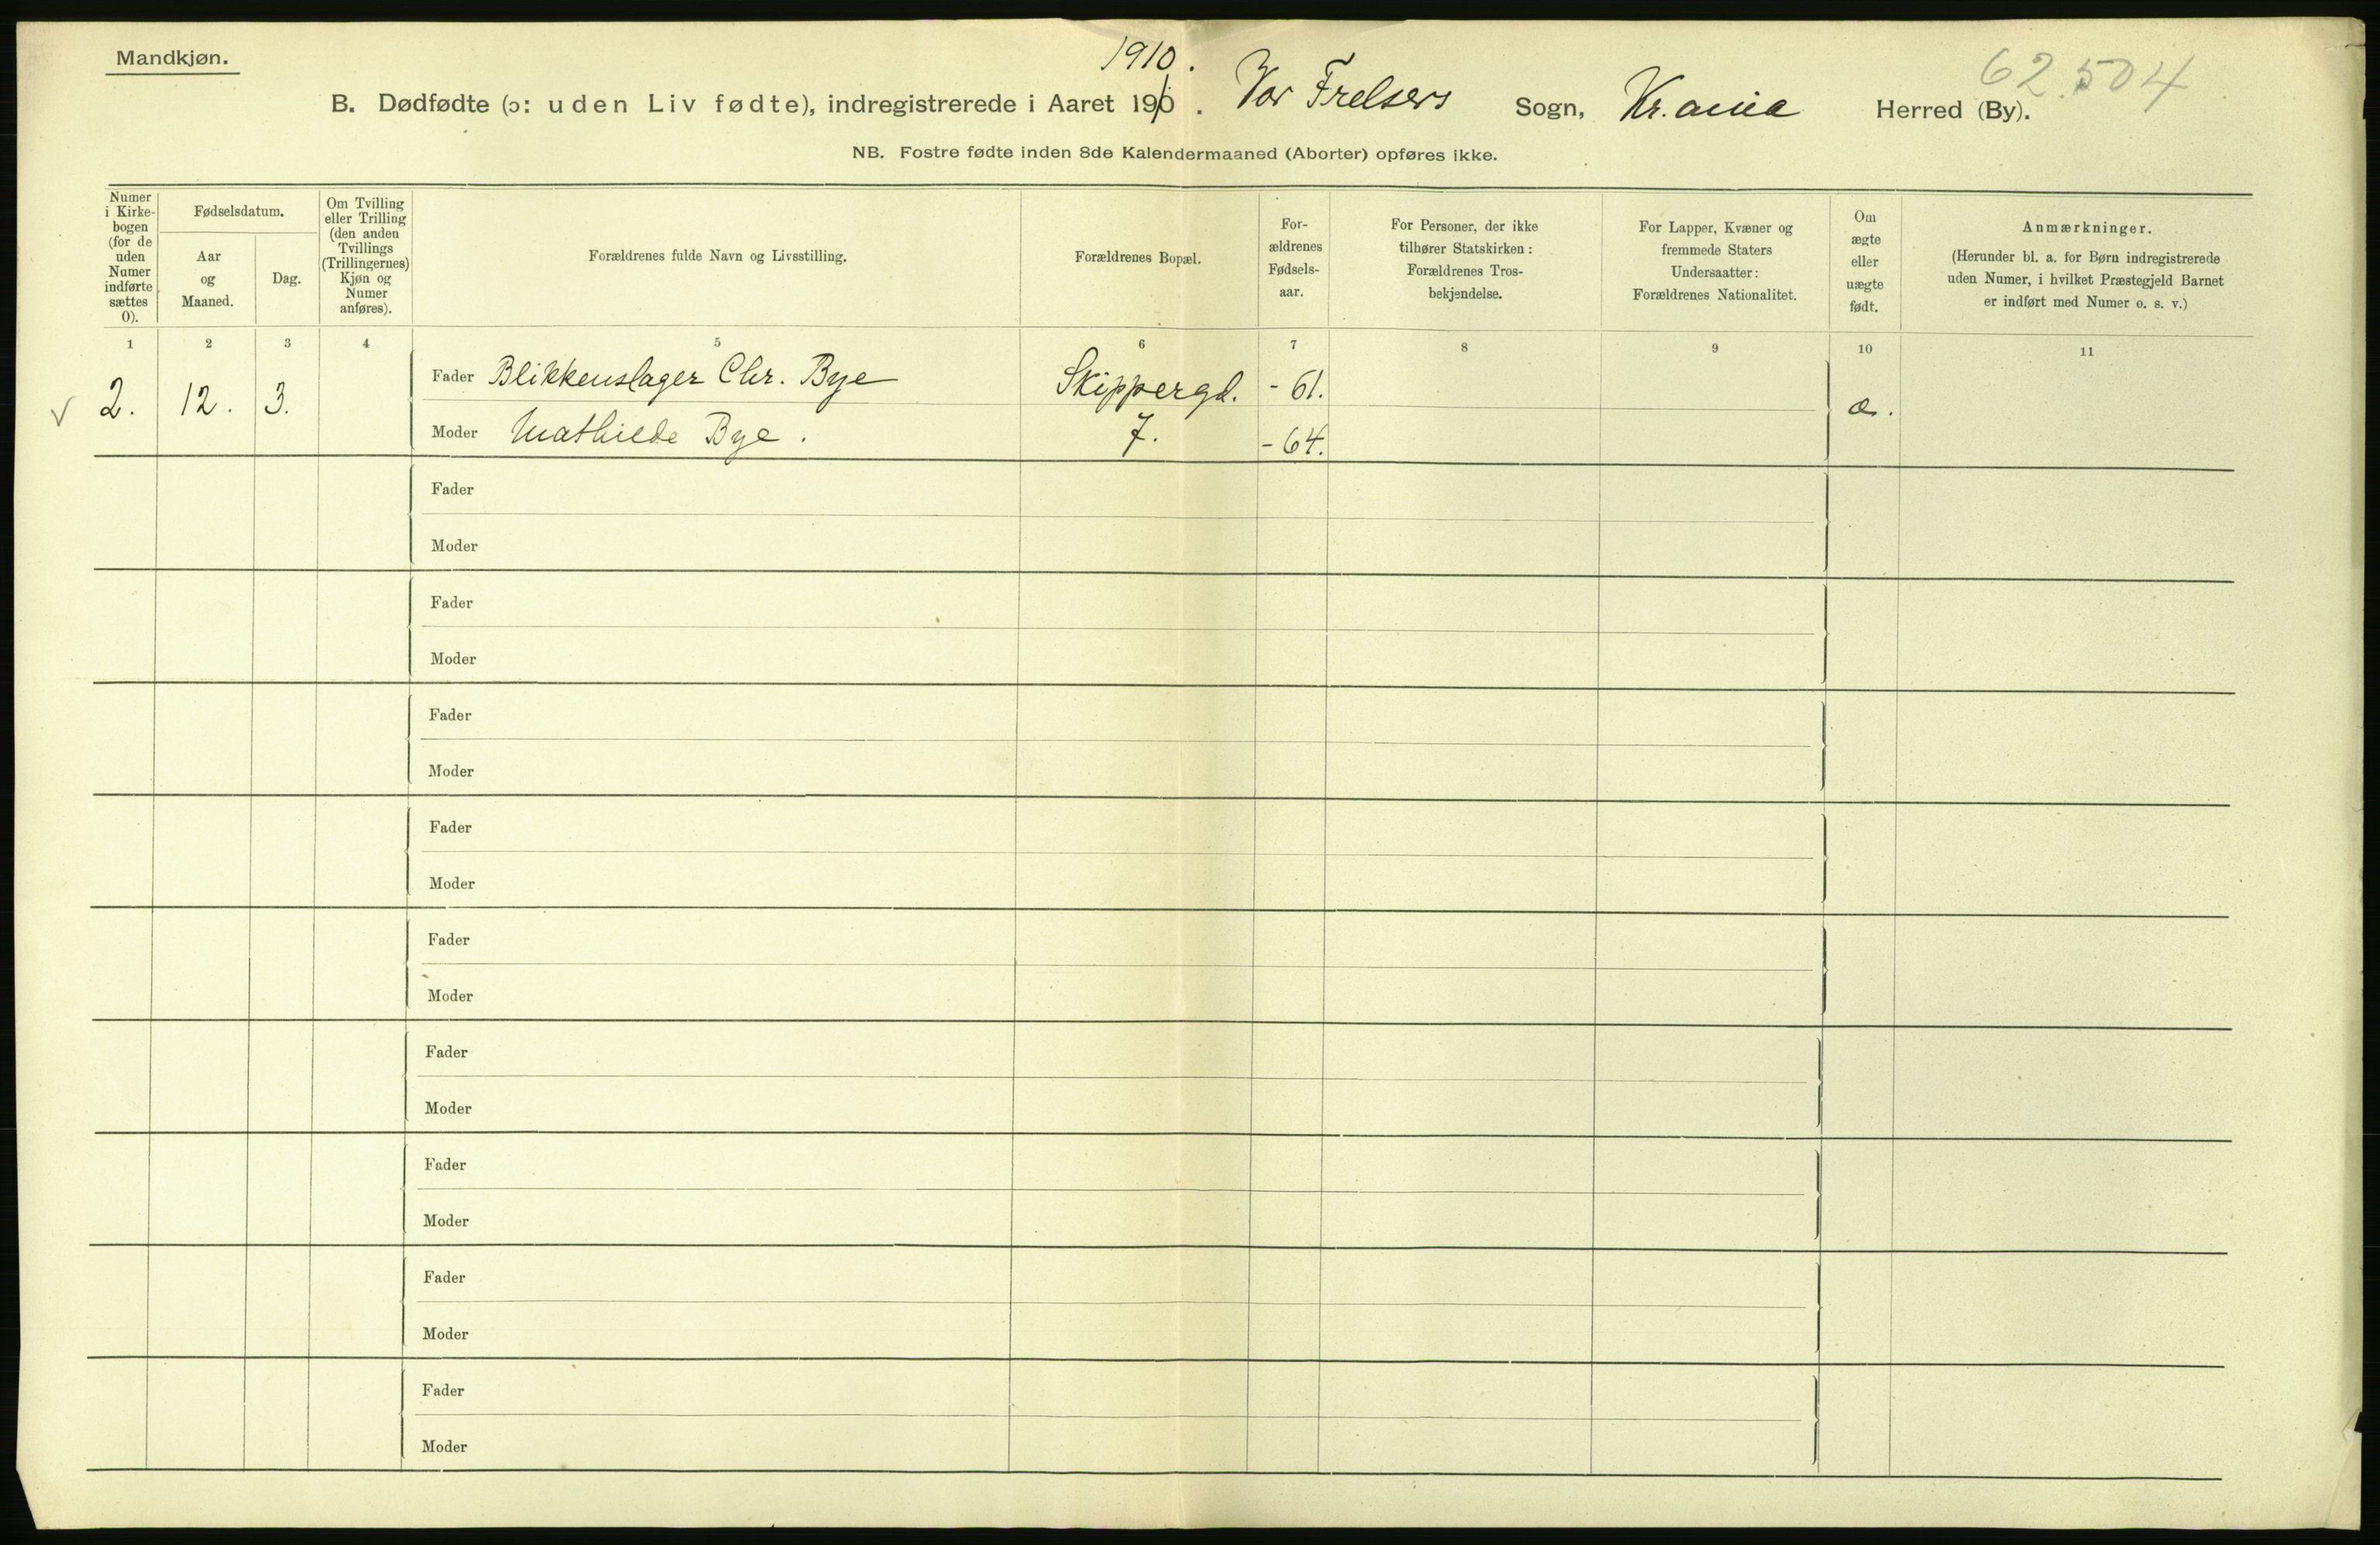 Mandkjøn.
1910.
62.504
B. Dødfødte (ɔ: uden Liv fødte), indregistrerede i Aaret 190. Vor Frelsers Sogn, Kr.ania Herred (By).
NB. Fostre fødte inden 8de Kalendermaaned (Aborter) opføres ikke.
Numer
i Kirke-
bogen
(for de
uden
Numer
indførte
sættes
0).
Fødselsdatum.
Aar
og
Maaned.
Dag.
Om Tvilling
eller Trilling
(den anden
Tvillings
(Trillingernes)
Kjøn og
Numer
anføres).
Forældrenes fulde Navn og Livsstilling.
Forældrenes Bopæl.
For-
ældrenes
Fødsels-
aar.
For Personer, der ikke
tilhører Statskirken:
Forældrenes Tros-
bekjendelse.
For Lapper, Kvæner og
fremmede Staters
Undersaatter:
Forældrenes Nationalitet.
Om
ægte
eller
uægte
født.
Anmærkninger.
(Herunder bl. a. for Børn indregistrerede
uden Numer, i hvilket Præstegjeld Barnet
er indført med Numer o. s. v.)
1 2 3 4 5 6 7 8 9 10 11
Fader Blikkenslager Chr. Bye Skippergd. - 61.
√ 2. 12. 3. æ.
Moder Mathilde Bye. 7. - 64.
Fader
Moder
Fader
Moder
Fader
Moder
Fader
Moder
Fader
Moder
Fader
Moder
Fader
Moder
Fader
Moder
Fader
Moder